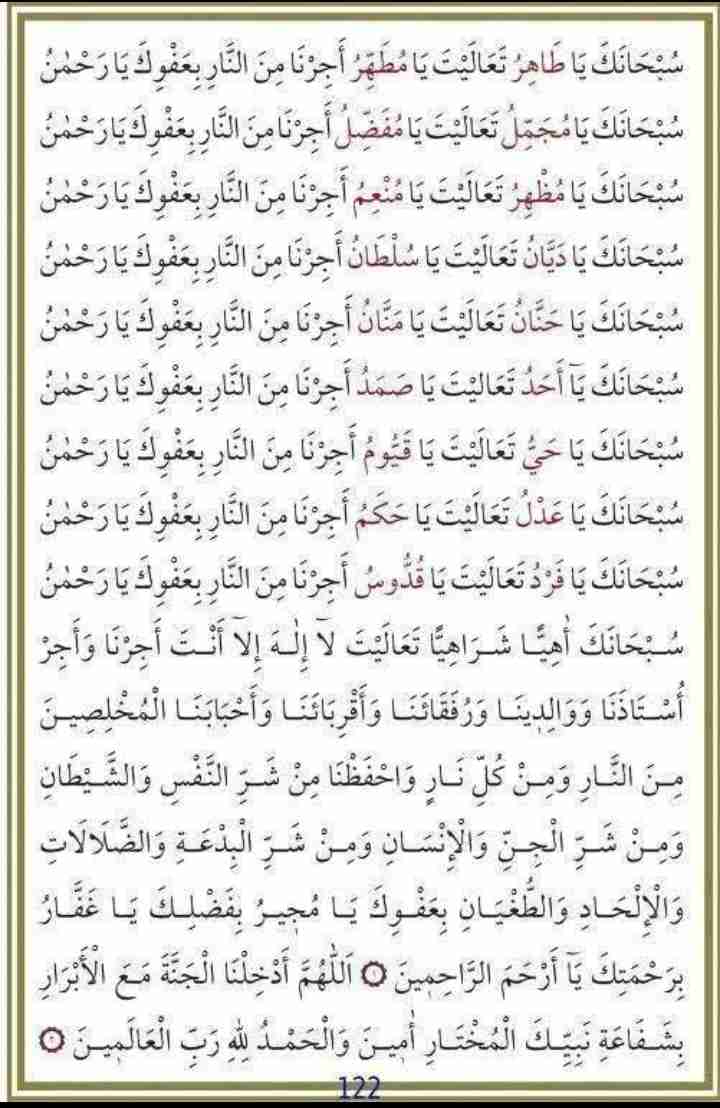 سُبْحَانَكَ يَا طَاهِرُ تَعَالَيْتَ يَا مُطَهِّرُ أَجِرْنَا مِنَ النَّارِ بِعَفْوِكَ يَا رَحْمٰنُ
سُبْحَانَكَ يَا مُجَمِّلُ تَعَالَيْتَ يَا مُفَضِّلُ أَجِرْنَا مِنَ النَّارِ بِعَفْوِكَ يَا رَحْمٰنُ
سُبْحَانَكَ يَا مُظْهِرُ تَعَالَيْتَ يَا مُنْعِمُ أَجِرْنَا مِنَ النَّارِ بِعَفْوِكَ يَا رَحْمٰنُ
سُبْحَانَكَ يَا دَيَّانُ تَعَالَيْتَ يَا سُلْطَانُ أَجِرْنَا مِنَ النَّارِ بِعَفْوِكَ يَا رَحْمٰنُ
سُبْحَانَكَ يَا حَنَّانُ تَعَالَيْتَ يَا مَنَّانُ أَجِرْنَا مِنَ النَّارِ بِعَفْوِكَ يَا رَحْمٰنُ
سُبْحَانَكَ يَآ أَحَدُ تَعَالَيْتَ يَا صَمَدُ أَجِرْنَا مِنَ النَّارِ بِعَفْوِكَ يَا رَحْمٰنُ
سُبْحَانَكَ يَا حَيُّ تَعَالَيْتَ يَا قَيُّومُ أَجِرْنَا مِنَ النَّارِ بِعَفْوِكَ يَا رَحْمٰنُ
سُبْحَانَكَ يَا عَدْلُ تَعَالَيْتَ يَا حَكَمُ أَجِرْنَا مِنَ النَّارِ بِعَفْوِكَ يَا رَحْمٰنُ
سُبْحَانَكَ يَا فَرْدُ تَعَالَيْتَ يَا قُدُّوسُ أَجِرْنَا مِنَ النَّارِ بِعَفْوِكَ يَا رَحْمٰنُ
سُبْحَانَكَ أٰهِيًّا شَرَاهِيًّا تَعَالَيْتَ لَآ إِلٰهَ إِلَّآ أَنْتَ أَجِرْنَا وَأَجِرْ
أُسْتَاذَنَا وَوَالِدِينَا وَرُفَقَائَنَا وَأَقْرِبَائَنَا وَأَحْبَابَنَا الْمُخْلِصِينَ
مِنَ النَّارِ وَمِنْ كُلِّ نَارٍ وَاحْفَظْنَا مِنْ شَرِّ النَّفْسِ وَالشَّيْطَانِ
وَمِنْ شَرِّ الْجِنِّ وَالْإِنْسَانِ وَمِنْ شَرِّ الْبِدْعَةِ وَالضَّلَالَاتِ
وَالْإِلْحَادِ وَالطُّغْيَانِ بِعَفْوِكَ يَا مُجِيرُ بِفَضْلِكَ يَا غَفَّارُ
بِرَحْمَتِكَ يَآ أَرْحَمَ الرَّاحِمِينَ ١ اَللّٰهُمَّ أَدْخِلْنَا الْجَنَّةَ مَعَ الْأَبْرَارِ
بِشَفَاعَةِ نَبِيِّكَ الْمُخْتَارِ أٰمِينَ وَالْحَمْدُ لِلّٰهِ رَبِّ الْعَالَمِينَ ٢
122